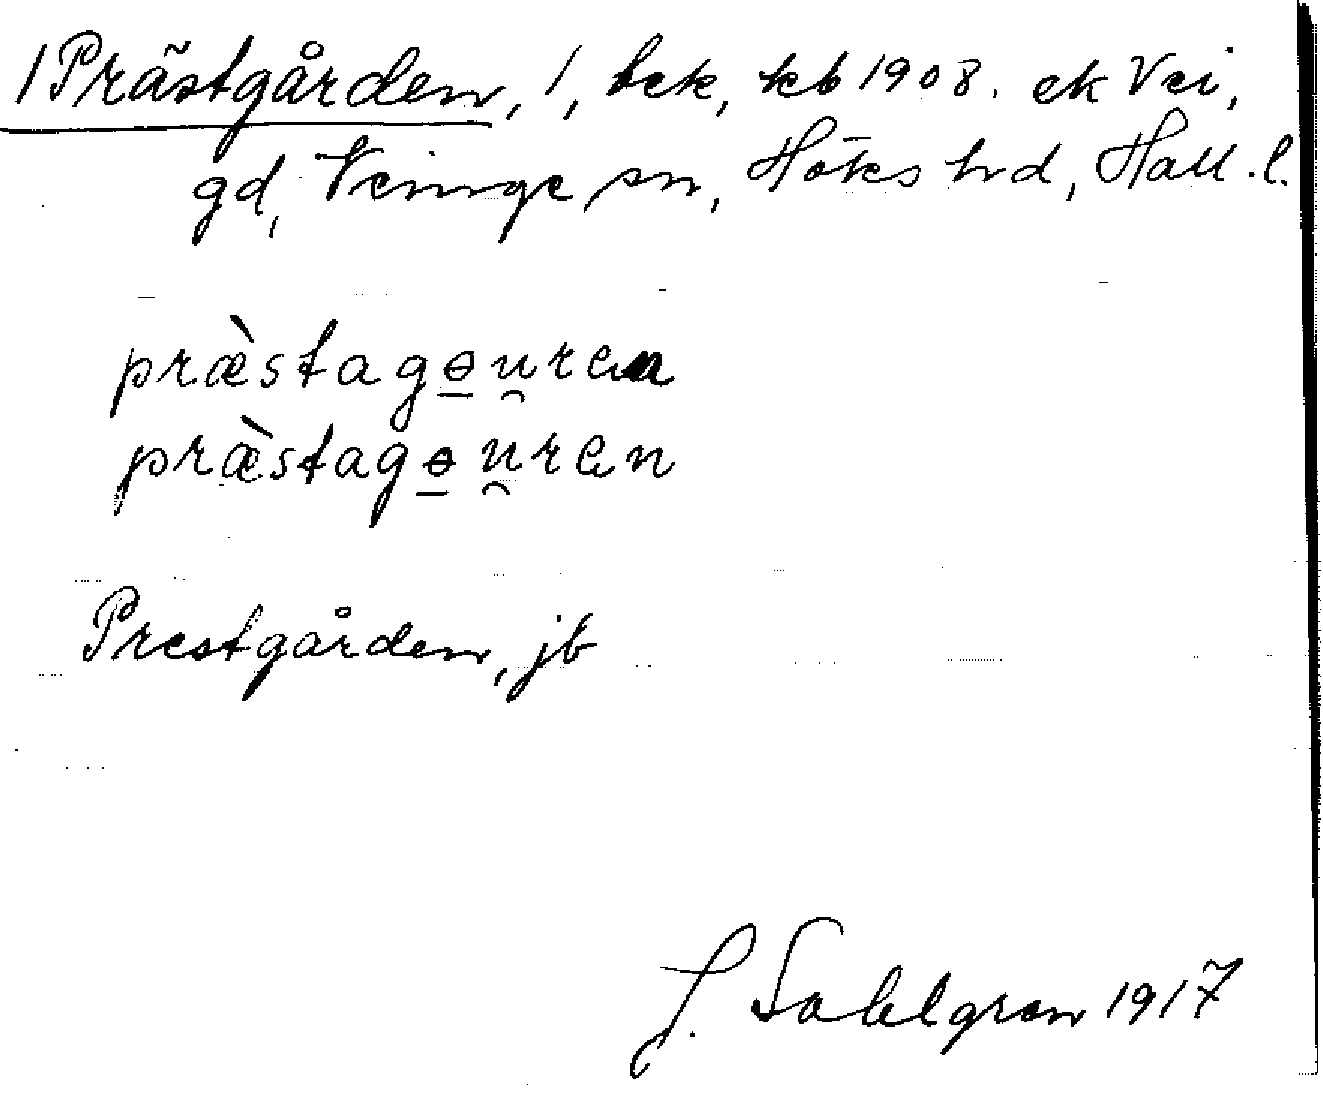 1 Prästgården, 1, bek, kb 1908. ek Vei,
gd, Veinge sn, Höks hd, Hall. l.
præ̀stagɵ̱u̯ren
præ̀stagɵ̱u̯ren
Prestgården, jb
J. Sahlgren 1917